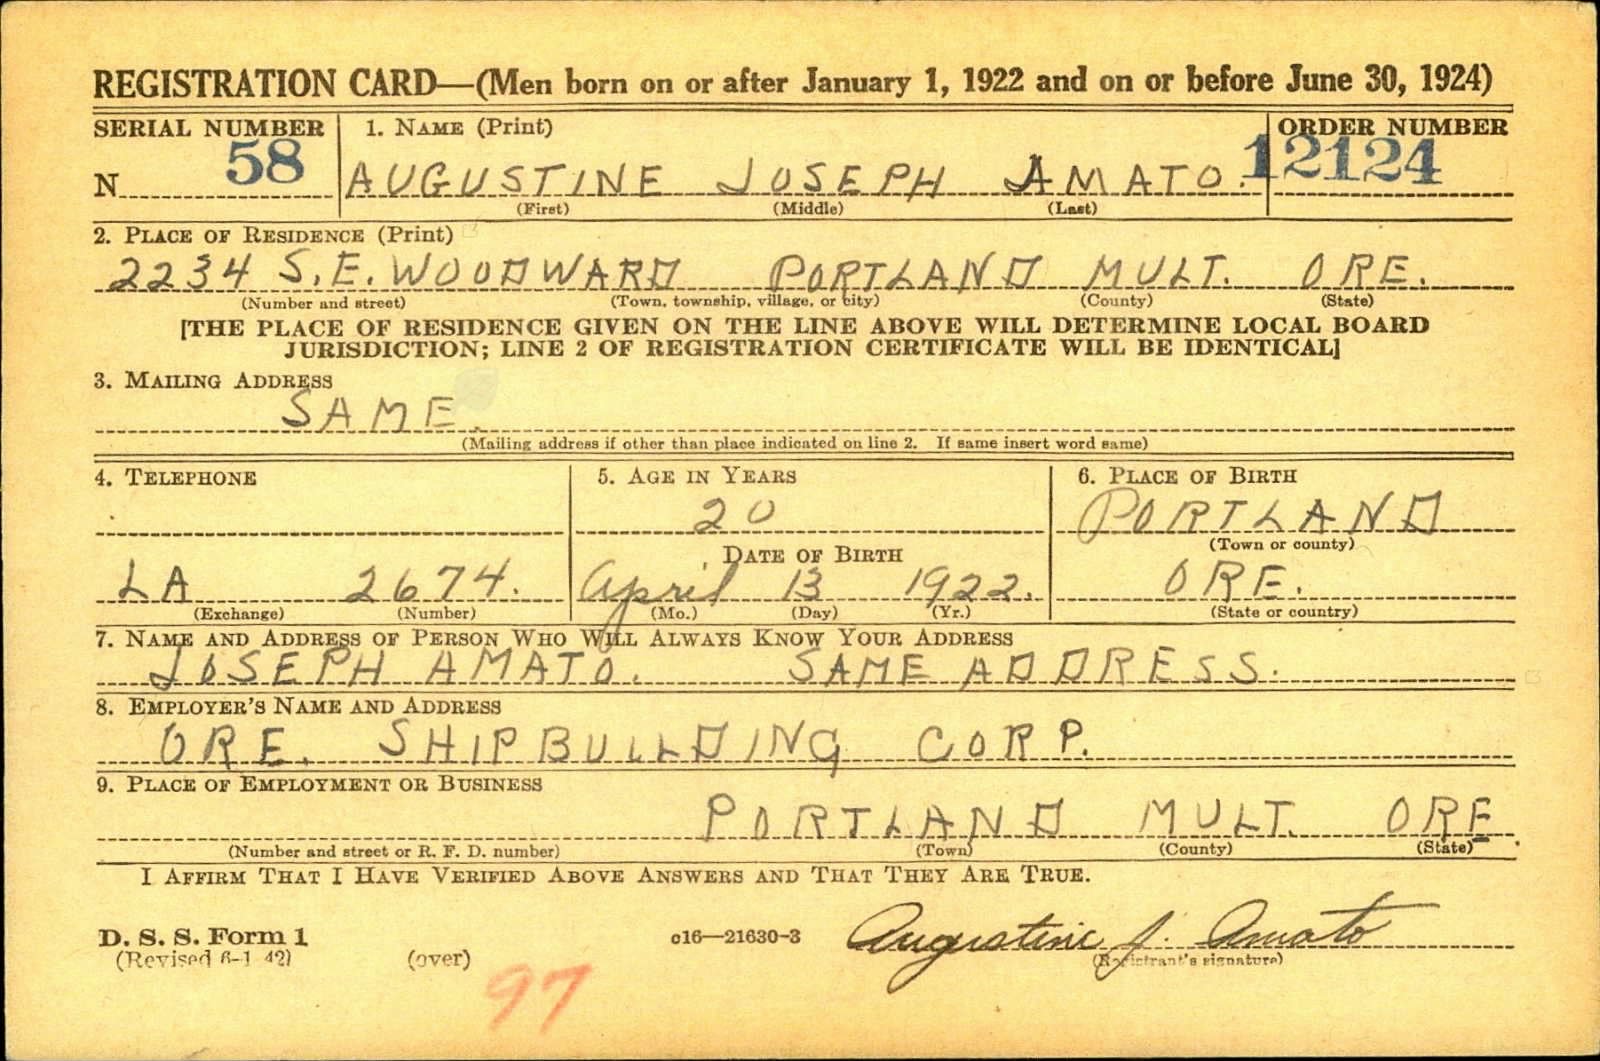 REGISTRATION CARD—(Men born on or after January 1, 1922 and on or before June 30, 1924)
SERIAL NUMBER 1. NAME (Print) ORDER NUMBER
N 58 AUGUSTINE JOSEPH AMATO. 12124
(First) (Middle) (Last)
2. PLACE OF RESIDENCE (Print)
2234 S.E. WOODWARD PORTLAND MULT. ORE.
(Number and street) (Town, township, village, or city) (County) (State)
[THE PLACE OF RESIDENCE GIVEN ON THE LINE ABOVE WILL DETERMINE LOCAL BOARD
JURISDICTION; LINE 2 OF REGISTRATION CERTIFICATE WILL BE IDENTICAL]
3. MAILING ADDRESS
SAME.
(Mailing address if other than place indicated on line 2. If same insert word same)
4. TELEPHONE 5. AGE IN YEARS 6. PLACE OF BIRTH
20 PORTLAND
DATE OF BIRTH (Town or county)
LA 2674. April 13 1922. ORE.
(Exchange) (Number) (Mo.) (Day) (Yr.) (State or country)
7. NAME AND ADDRESS OF PERSON WHO WILL ALWAYS KNOW YOUR ADDRESS
JOSEPH AMATO. SAME ADDRESS.
8. EMPLOYER'S NAME AND ADDRESS
ORE. SHIPBUILDING CORP.
9. PLACE OF EMPLOYMENT OR BUSINESS
PORTLAND MULT. ORE
(Number and street or R. F. D. number) (Town) (County) (State)
I AFFIRM THAT I HAVE VERIFIED ABOVE ANSWERS AND THAT THEY ARE TRUE.
D. S. S. Form 1 c16—21630-3 Augustine J. Amato
(Revised 6-1-42) (over) (Registrant's signature)
97